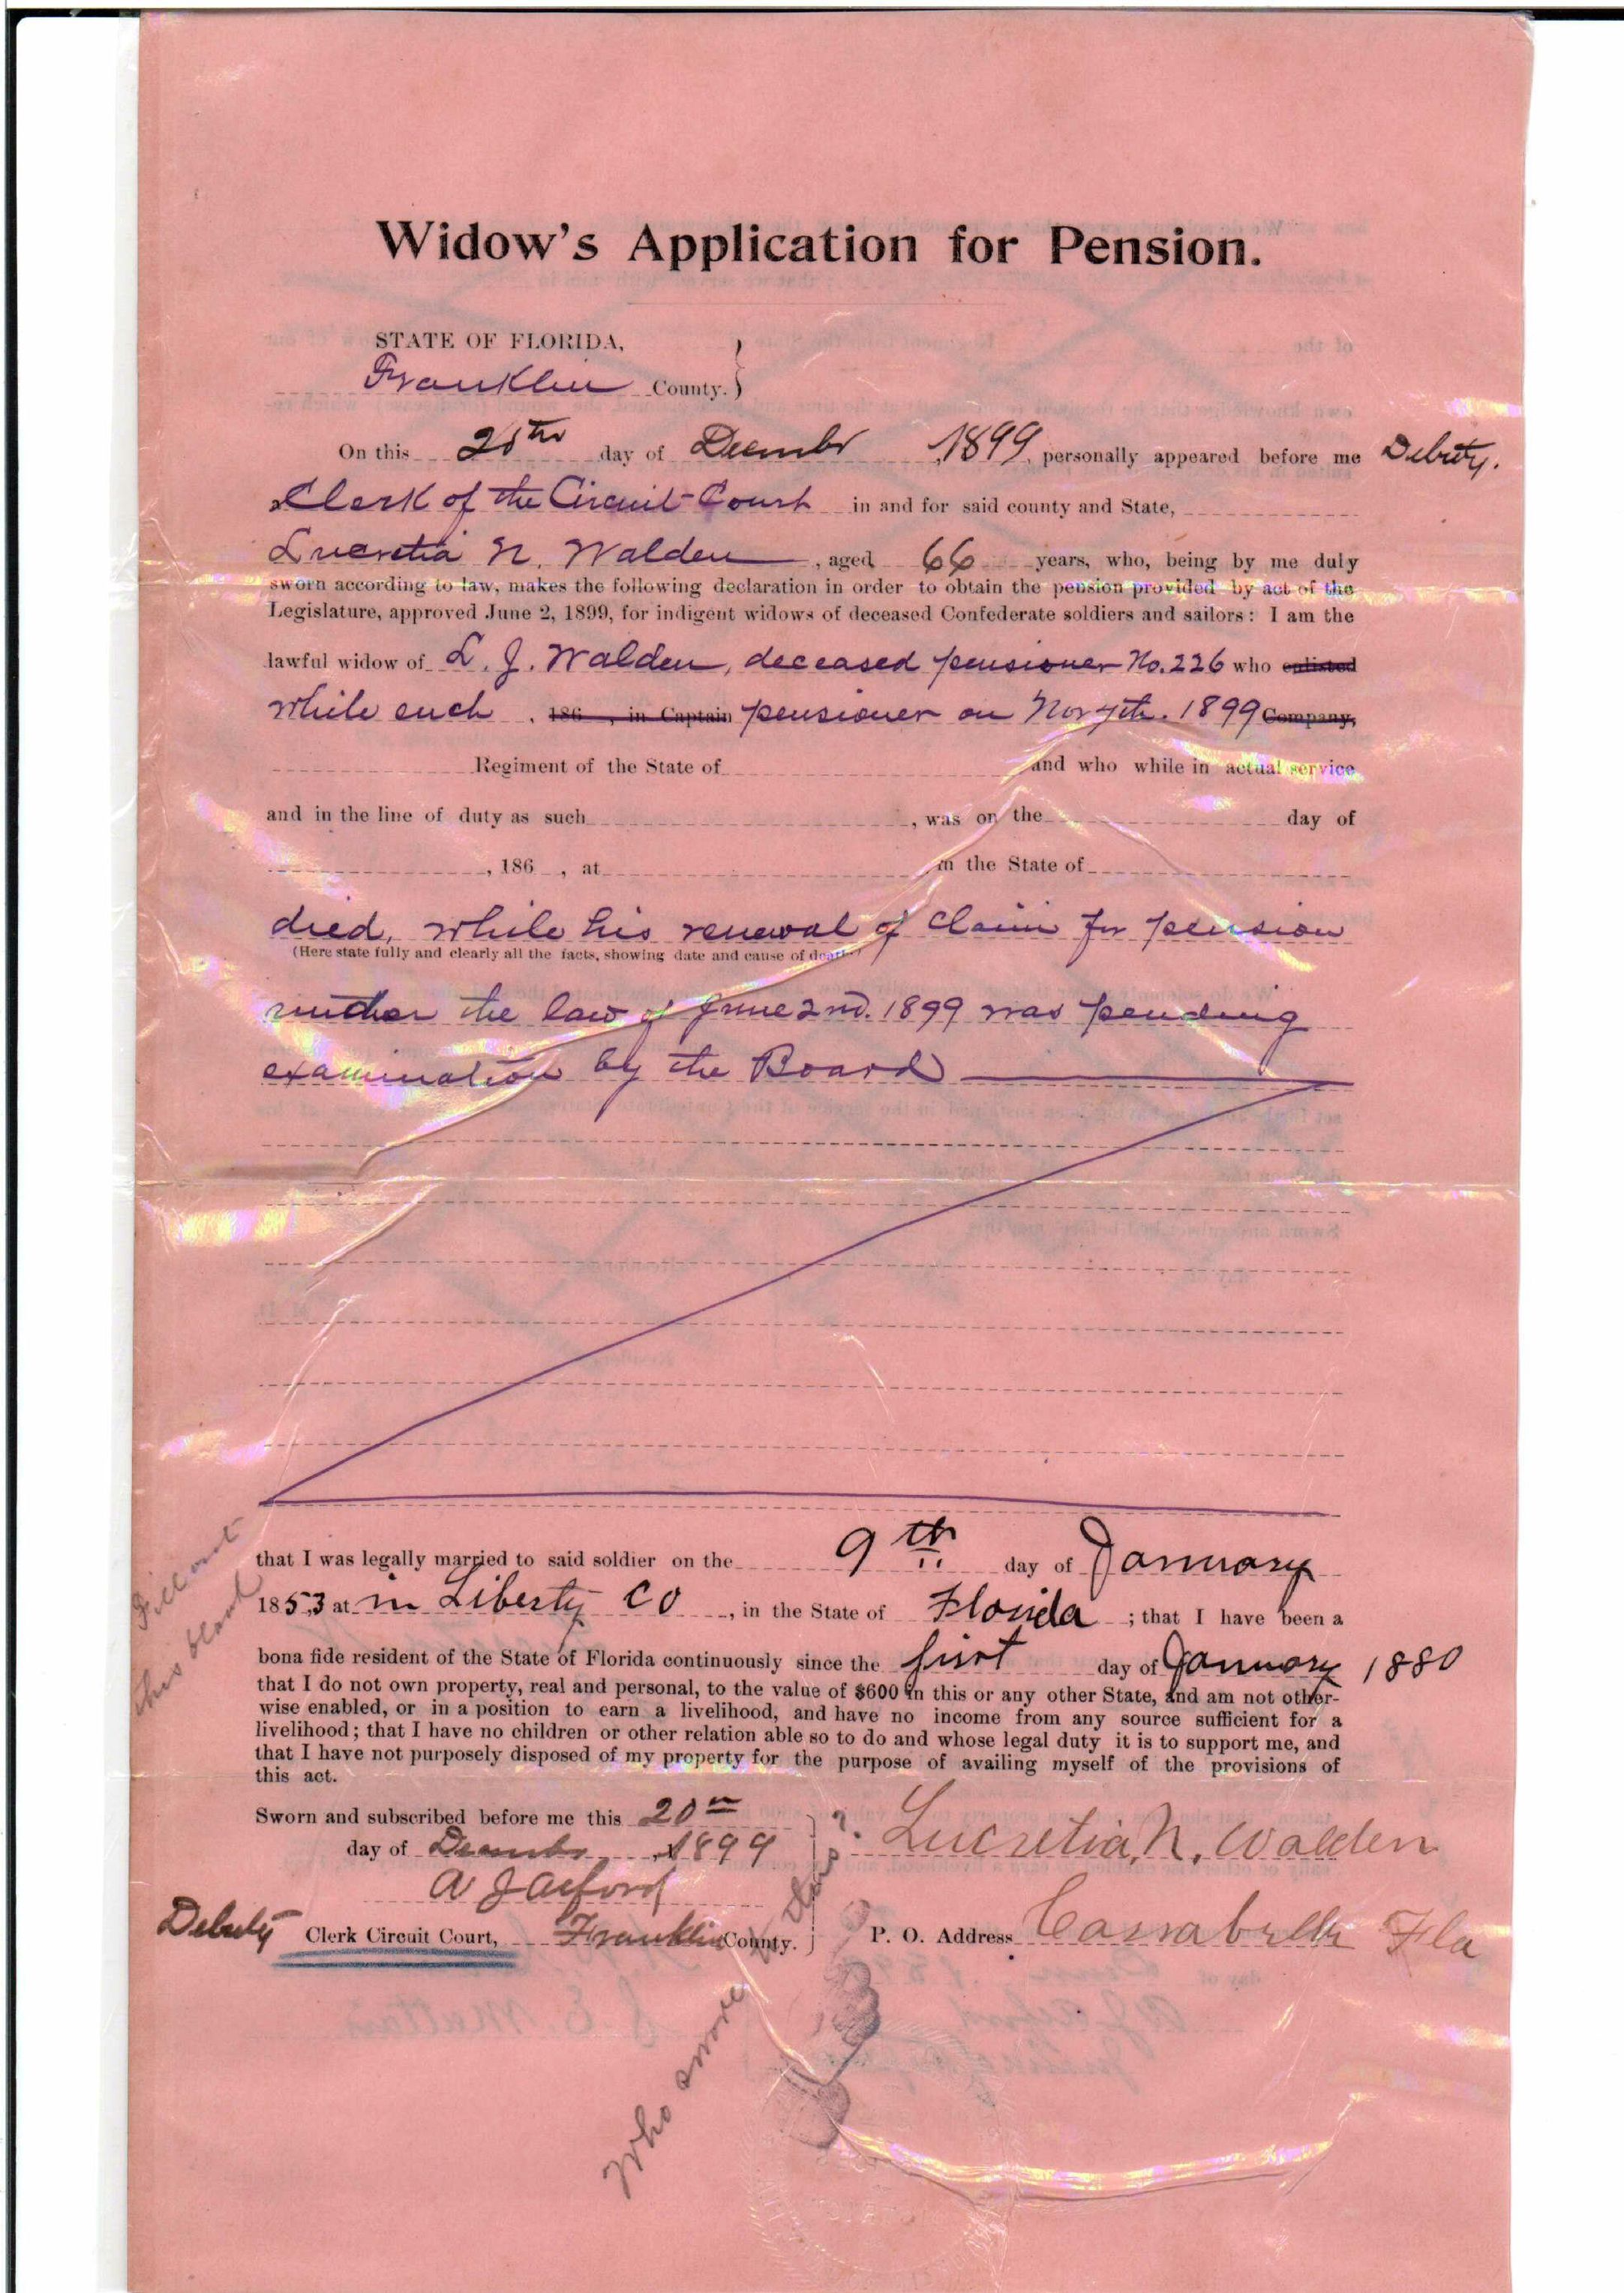 Widow's Application for Pension.
STATE OF FLORIDA,
Franklin County.
On this 20th day of Decembr, 1899, personally appeared before me Debuty.
Clerk of the Circuit Court in and for said county and State,
Lucretia N. Walden, aged 66 years, who, being by me duly
sworn according to law, makes the following declaration in order to obtain the pension provided by act of the
Legislature, approved June 2, 1899, for indigent widows of deceased Confederate soldiers and sailors: I am the
lawful widow of L. J. Walden, deceased pensioner No. 226 who enlisted
while such, 186 , in Captain pensioner on Nov 7th. 1899 Company,
Regiment of the State of and who while in actual service
and in the line of duty as such , was on the day of
, 186 , at in the State of
died, while his renewal of claim for pension
(Here state fully and clearly all the facts, showing date and cause of death.)
under the law of June 2nd. 1899 was pending
examination by the Board
that I was legally married to said soldier on the 9th day of January
1853 at in Liberty Co, in the State of Florida; that I have been a
bona fide resident of the State of Florida continuously since the first day of January 1880
that I do not own property, real and personal, to the value of $600 in this or any other State, and am not other-
wise enabled, or in a position to earn a livelihood, and have no income from any source sufficient for a
livelihood; that I have no children or other relation able so to do and whose legal duty it is to support me, and
that I have not purposely disposed of my property for the purpose of availing myself of the provisions of
this act.
Fill out
this blank
Sworn and subscribed before me this 20th
day of Decembr, 1899
Lucretia, N. Walden
A J Alford
Debuty Clerk Circuit Court, Franklin County.
P. O. Address Carrabelle Fla
Who swore to this?